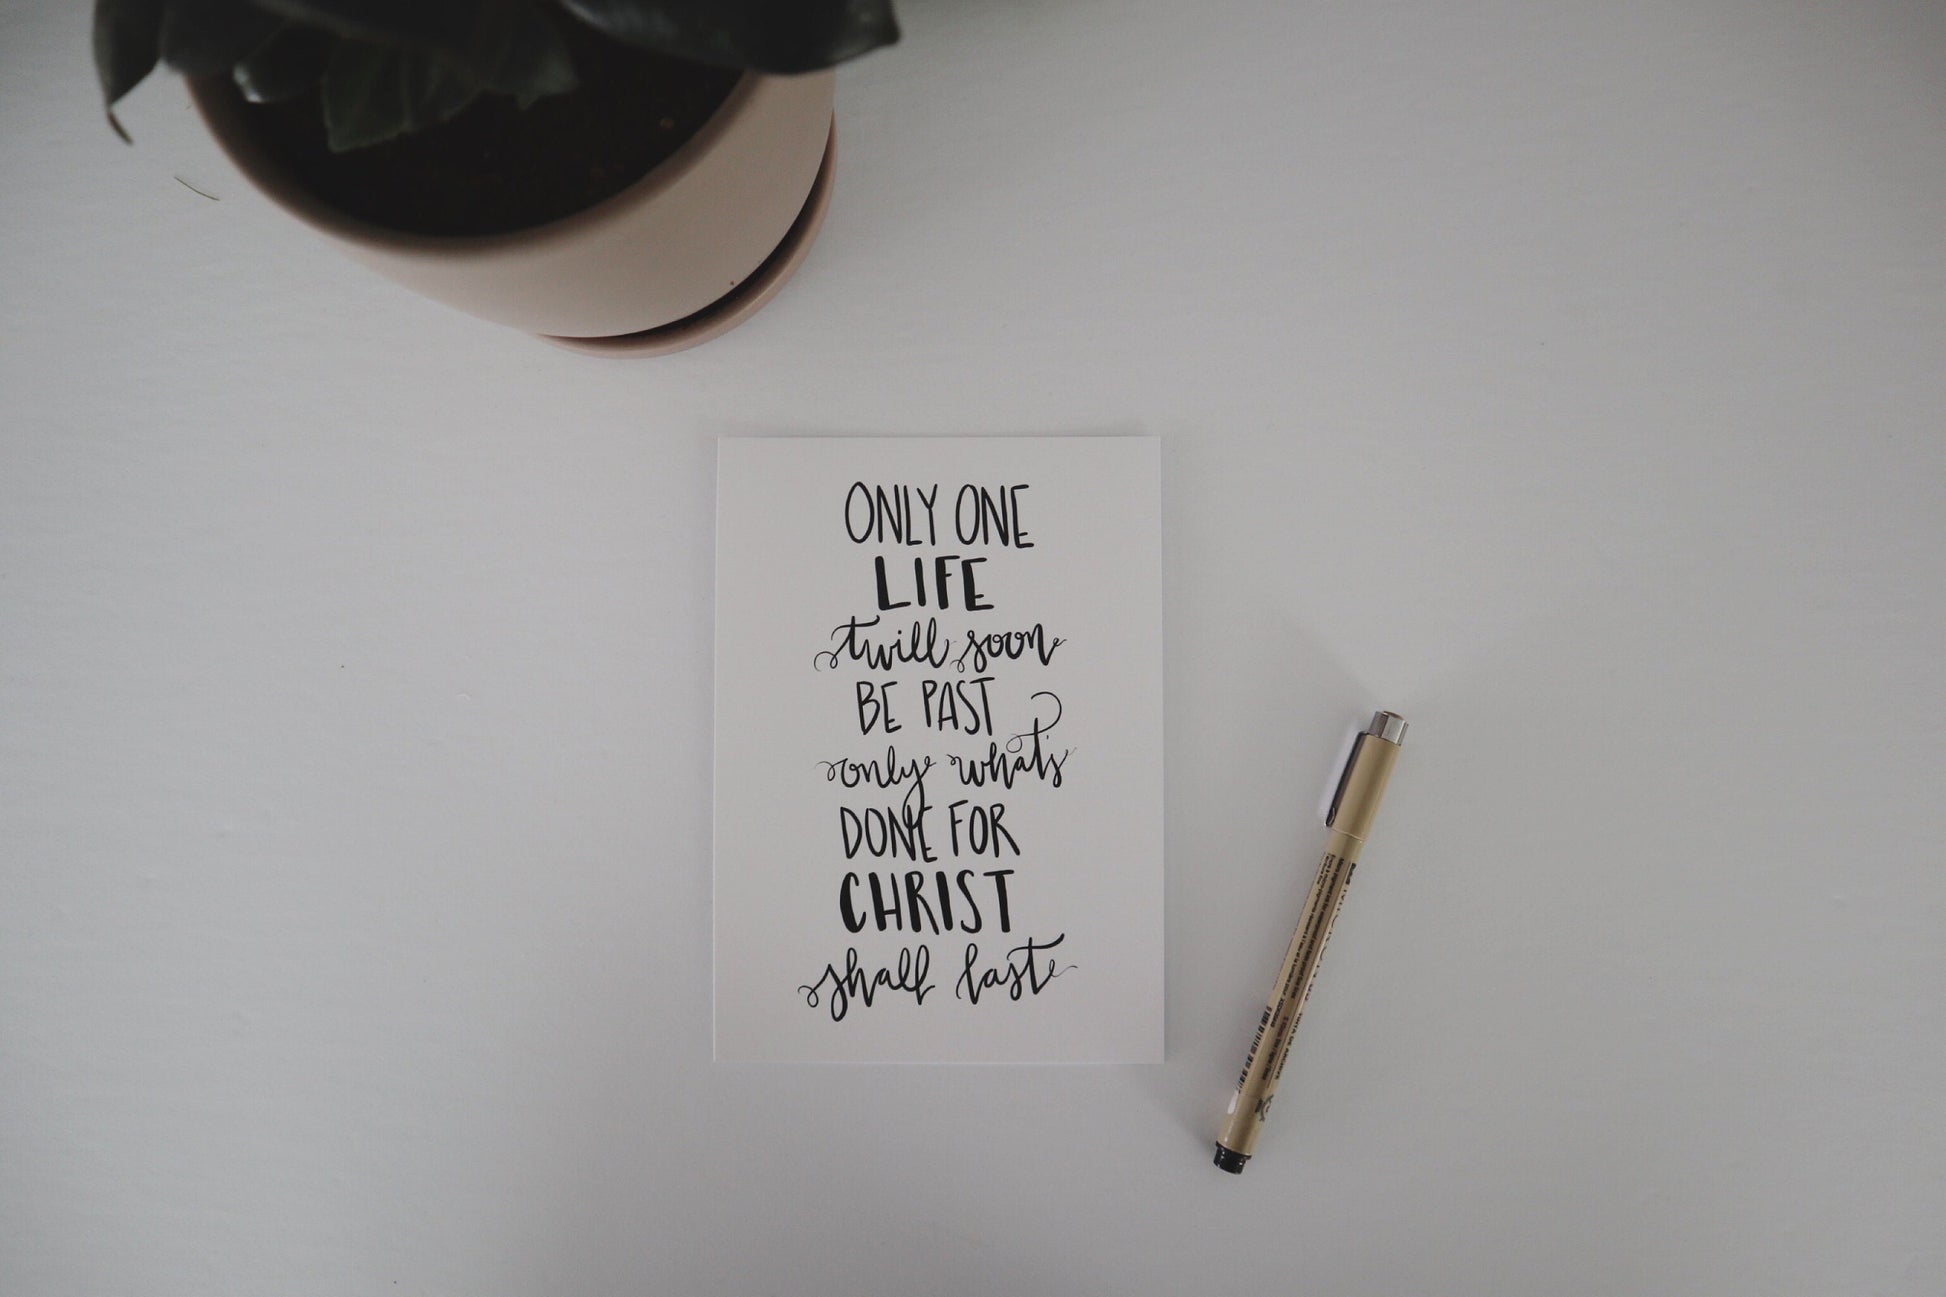 ONLY ONE
LIFE
twill soon
BE PAST
only what's
DONE FOR
CHRIST
shall last